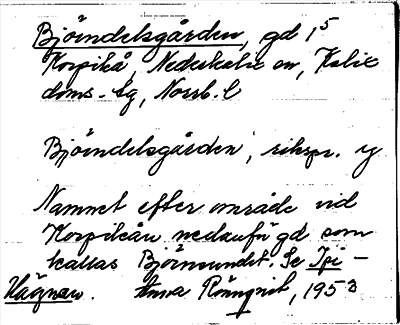 Björndelsgården, gd 1⁵
Korpikå, Nederkalix sn, Kalix
doms. sg, Norrb. l
Björndelsgården, rikspr. ⁊
Namnet efter område vid
Korpikån nedanför gd som
kallas Björnsundet. Se Ipi-
Hägnan. Anna Rönnqvist, 1953